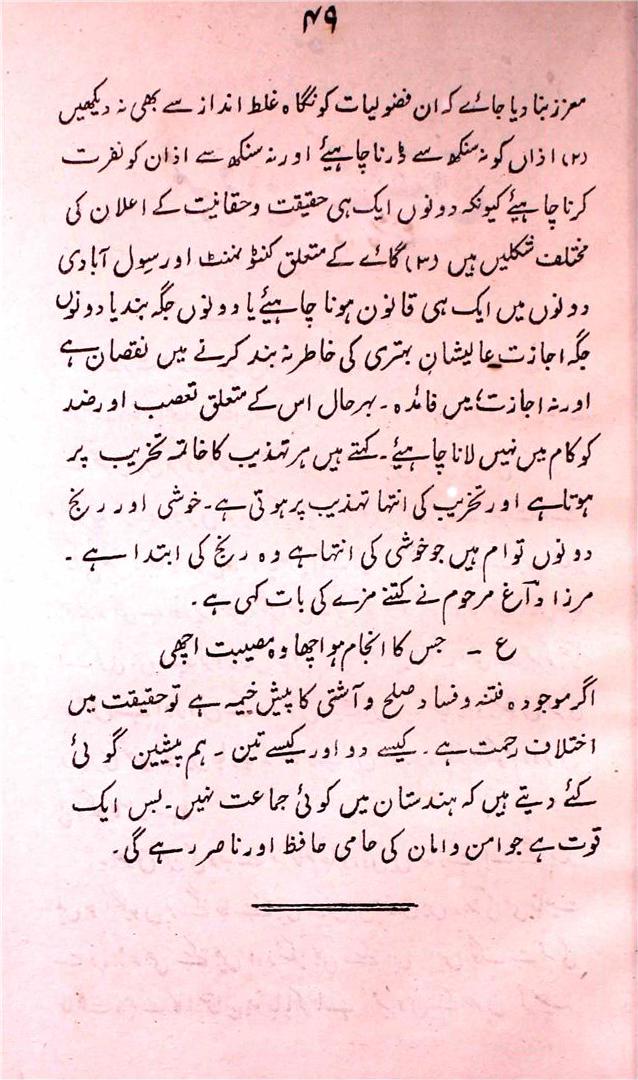 ۴۹
معزز بنا دیا جائے کہ ان فضولیات کو نگاہ غلط انداز سے بھی نہ دیکھیں
(۲) اذاں کو نہ سنکھ سے ڈرنا چاہیئے اور نہ سنکھ سے اذان کو نفرت
کرنا چاہیئے کیونکہ دونوں ایک ہی حقیقت و حقانیت کے اعلان کی
مختلف شکلیں ہیں (۳) گائے کے متعلق کنٹونمنٹ اور سول آبادی
دونوں میں ایک ہی قانون ہونا چاہیئے یا دونوں جگہ بند یا دونوں
جگہ اجازت عالیشان بہتری کی خاطر نہ بند کرنے میں نقصان ہے
اور نہ اجازت میں فائدہ ۔ بہرحال اس کے متعلق تعصب اور ضد
کو کام میں نہیں لانا چاہیئے ۔ کہتے ہیں ہر تہذیب کا خاتمہ تخریب پر
ہوتا ہے اور تخریب کی انتہا تہذیب پر ہوتی ہے ۔ خوشی اور رنج
دونوں توام ہیں جو خوشی کی انتہا ہے وہ رنج کی ابتدا ہے ۔
مرزا داغ مرحوم نے کتنے مزے کی بات کہی ہے ۔
ع ۔ جس کا انجام ہو اچھا وہ مصیبت اچھی
اگر موجودہ فتنہ و فساد صلح و آشتی کا پیش خیمہ ہے تو حقیقت میں
اختلاف رحمت ہے ۔ کیسے دو اور کیسے تین ۔ ہم پیشین گوئی
کئے دیتے ہیں کہ ہندستان میں کوئی جماعت نہیں ۔ بس ایک
قوت ہے جو امن و امان کی حامی حافظ اور ناصر رہے گی ۔